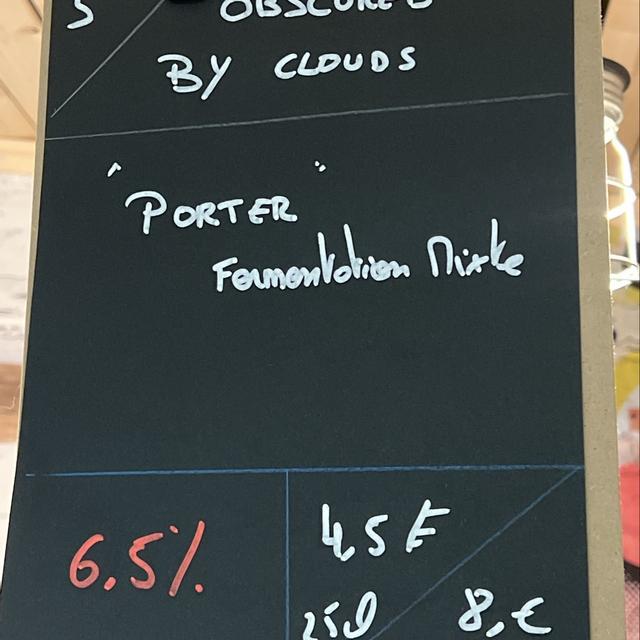 5 OBSCURED
BY CLOUDS
"PORTER"
Fermentation Mixte
6.5%
4,5 €
25cl 8,€